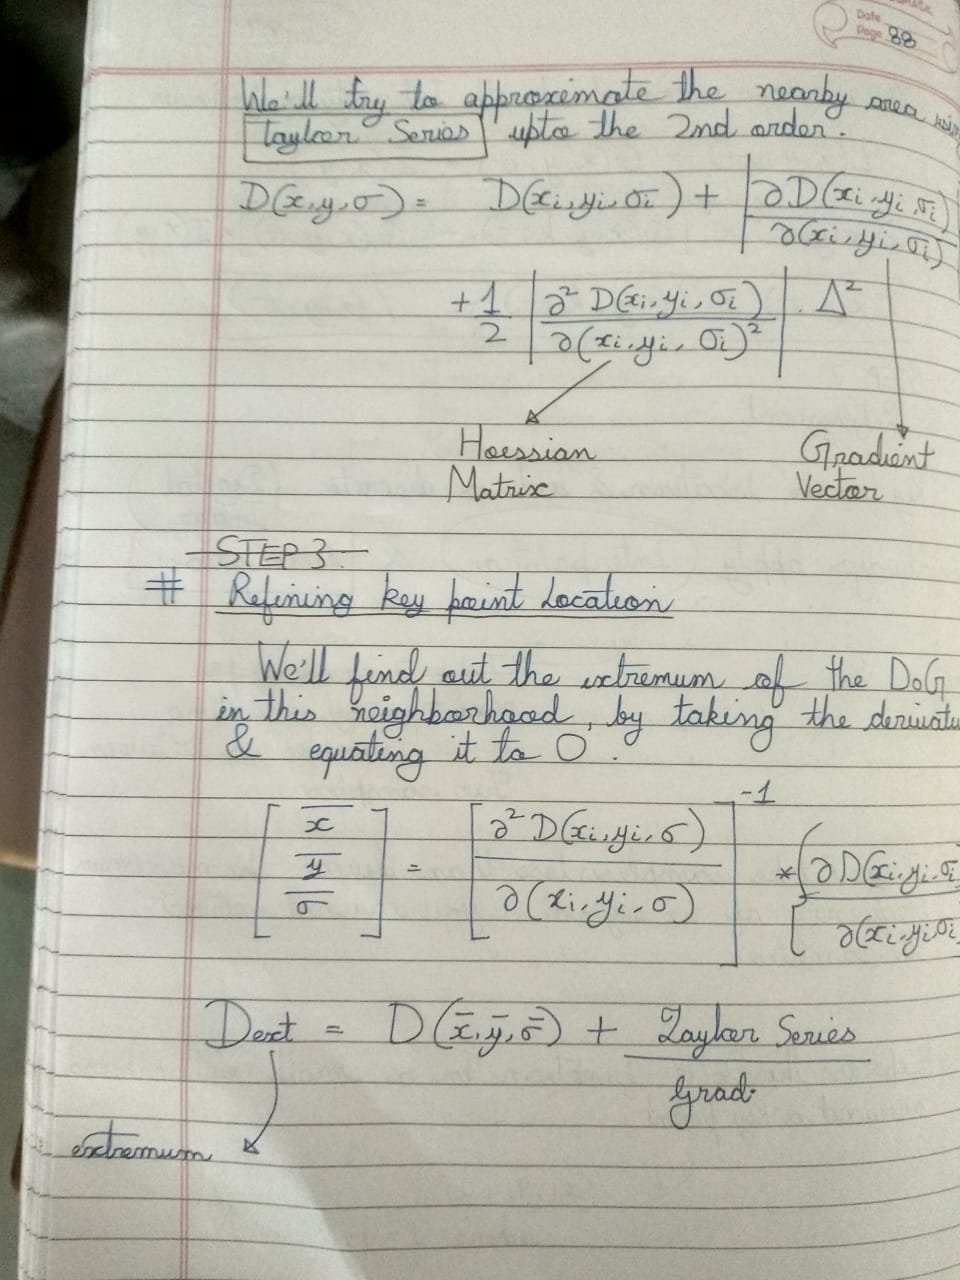 Date
Page 88
We'll try to approximate the nearby area
Taylor Series upto the 2nd order.
D(x,y,σ) = D(xi,yi,σi) + | ∂D(xi,yi,σi) / ∂(xi,yi,σi)
+ 1/2 | ∂² D(xi,yi,σi) / ∂(xi,yi,σi)² | . Δ²
Hoessian Gradient
Matrix Vector
STEP 3
# Refining key point Location
We'll find out the extremum of the DoG
in this neighborhood, by taking the derivatu
& equating it to 0.
[ x̄ ȳ σ̄ ] = [ ∂² D(xi,yi,σ) / ∂(xi,yi,σ) ]⁻¹ * [ ∂D(xi,yi,σi / ∂(xi,yi,σi
Dext = D(x̄,ȳ,σ̄) + Taylor Series / Grad.
extremum